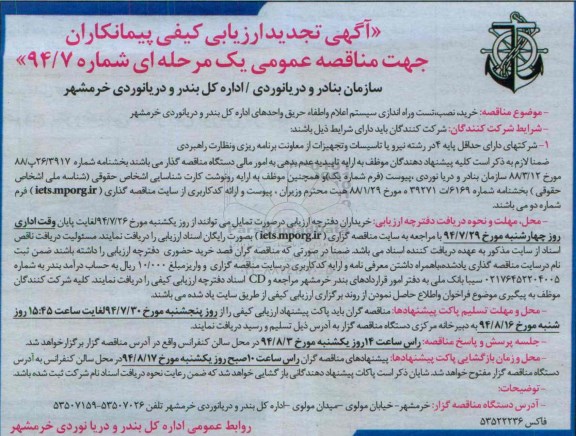 «آگهی تجدیدارزیابی کیفی پیمانکاران
جهت مناقصه عمومی یک مرحله ای شماره ۹۴/۷»
سازمان بنادر و دریانوردی / اداره کل بندر و دریانوردی خرمشهر
- موضوع مناقصه: خرید، نصب، تست وراه اندازی سیستم اعلام واطفاء حریق واحدهای اداره کل بندر و دریانوردی خرمشهر
- شرایط شرکت کنندگان: شرکت کنندگان باید دارای شرایط ذیل باشند:
۱- شرکتهای دارای حداقل پایه ۴در رشته نیرو یا تاسیسات وتجهیزات از معاونت برنامه ریزی ونظارت راهبردی
ضمنا لازم به ذکر است کلیه پیشنهاد دهندگان موظف به ارایه تاییدیه عدم بدهی به امور مالی دستگاه مناقصه گذار می باشند بخشنامه شماره ۲۶/۳۹۱۷ب/۸۸
مورخ ۸۸/۳/۱۲ سازمان بنادر و دریا نوردی ،پیوست (فرم شماره یک)و همچنین موظف به ارایه رونوشت کارت شناسایی اشخاص حقوقی (شناسه ملی اشخاص
حقوقی ) بخشنامه شماره ۱۶۱۶۹/ت ۳۹۲۷۱ ه مورخ ۸۸/۱/۲۹ هیت محترم وزیران ، پیوست و ارائه کدکاربری از سایت مناقصه گذاری ( iets.mporg.ir ) فرم
شماره دو می باشند.
- محل، مهلت و نحوه دریافت دفترچه ارزیابی: خریداران دفترچه ارزیابی درصورت تمایل می توانند از روز یکشنبه مورخ ۹۴/۷/۲۶لغایت پایان وقت اداری
روز چهارشنبه مورخ ۹۴/۷/۲۹ با مراجعه به سایت مناقصه گزاری ( iets.mporg.ir) بصورت رایگان اسناد ارزیابی را دریافت نمایند. مسئولیت دریافت ناقص
اسناد از سایت مذکور به عهده دریافت کننده اسناد می باشد. ضمنا در صورتی که مناقصه گران قصد خرید حضوری دفترچه ارزیابی را داشته باشند ضمن ثبت
نام درسایت مناقصه گذاری یادشده،باهمراه داشتن معرفی نامه و ارایه کدکاربری درسایت مناقصه گزاری و واریزمبلغ ۱۰/۰۰۰ ریال به حساب درآمد بندر به شماره
۰۲۱۷۶۴۵۲۲۰۴۰۰۵ سیبا بانک ملی به دفتر امور قراردادهای بندر خرمشهر مراجعه و CD اسناد دفترچه ارزیابی کیفی را دریافت نمایند. کلیه شرکت کنندگان
موظف به پیگیری موضوع فراخوان واطلاع حاصل نمودن از روند برگزاری ارزیابی کیفی از طریق سایت یاد شده می باشند.
- محل و مهلت تسلیم پاکت پیشنهادها: مناقصه گران باید پاکت پیشنهاد ارزیابی کیفی را از روز پنجشنبه مورخ ۹۴/۷/۳۰لغایت ساعت ۱۵:۴۵ روز
شنبه مورخ ۹۴/۸/۱۶ به دبیرخانه مرکزی دستگاه مناقصه گزار به آدرس ذیل تسلیم و رسید دریافت نمایند.
- جلسه پرسش و پاسخ مناقصه: راس ساعت ۱۴روز یکشنبه مورخ ۹۴/۸/۳ در محل سالن کنفرانس واقع در آدرس دستگاه مناقصه گزار برگزارخواهد شد.
- محل و زمان بازگشایی پاکت پیشنهادها: پیشنهادهای مناقصه گران راس ساعت ۱۰صبح روز یکشنبه مورخ ۹۴/۸/۱۷در محل سالن کنفرانس به آدرس
دستگاه مناقصه گزار مفتوح خواهد شد. شایان ذکر است پاکات پیشنهاد دهندگانی باز گشایی خواهد شد که ضمن رعایت نحوه دریافت اسناد نام شرکت ثبت شده باشد.
- توضیحات:
- آدرس دستگاه مناقصه گزار: خرمشهر- خیابان مولوی –میدان مولوی –اداره کل بندر و دریانوردی خرمشهر تلفن ۵۳۵۰۷۰۲۶-۵۳۵۰۷۱۵۹
فاکس ۵۳۵۲۲۲۳۶
روابط عمومی اداره کل بندر و دریا نوردی خرمشهر